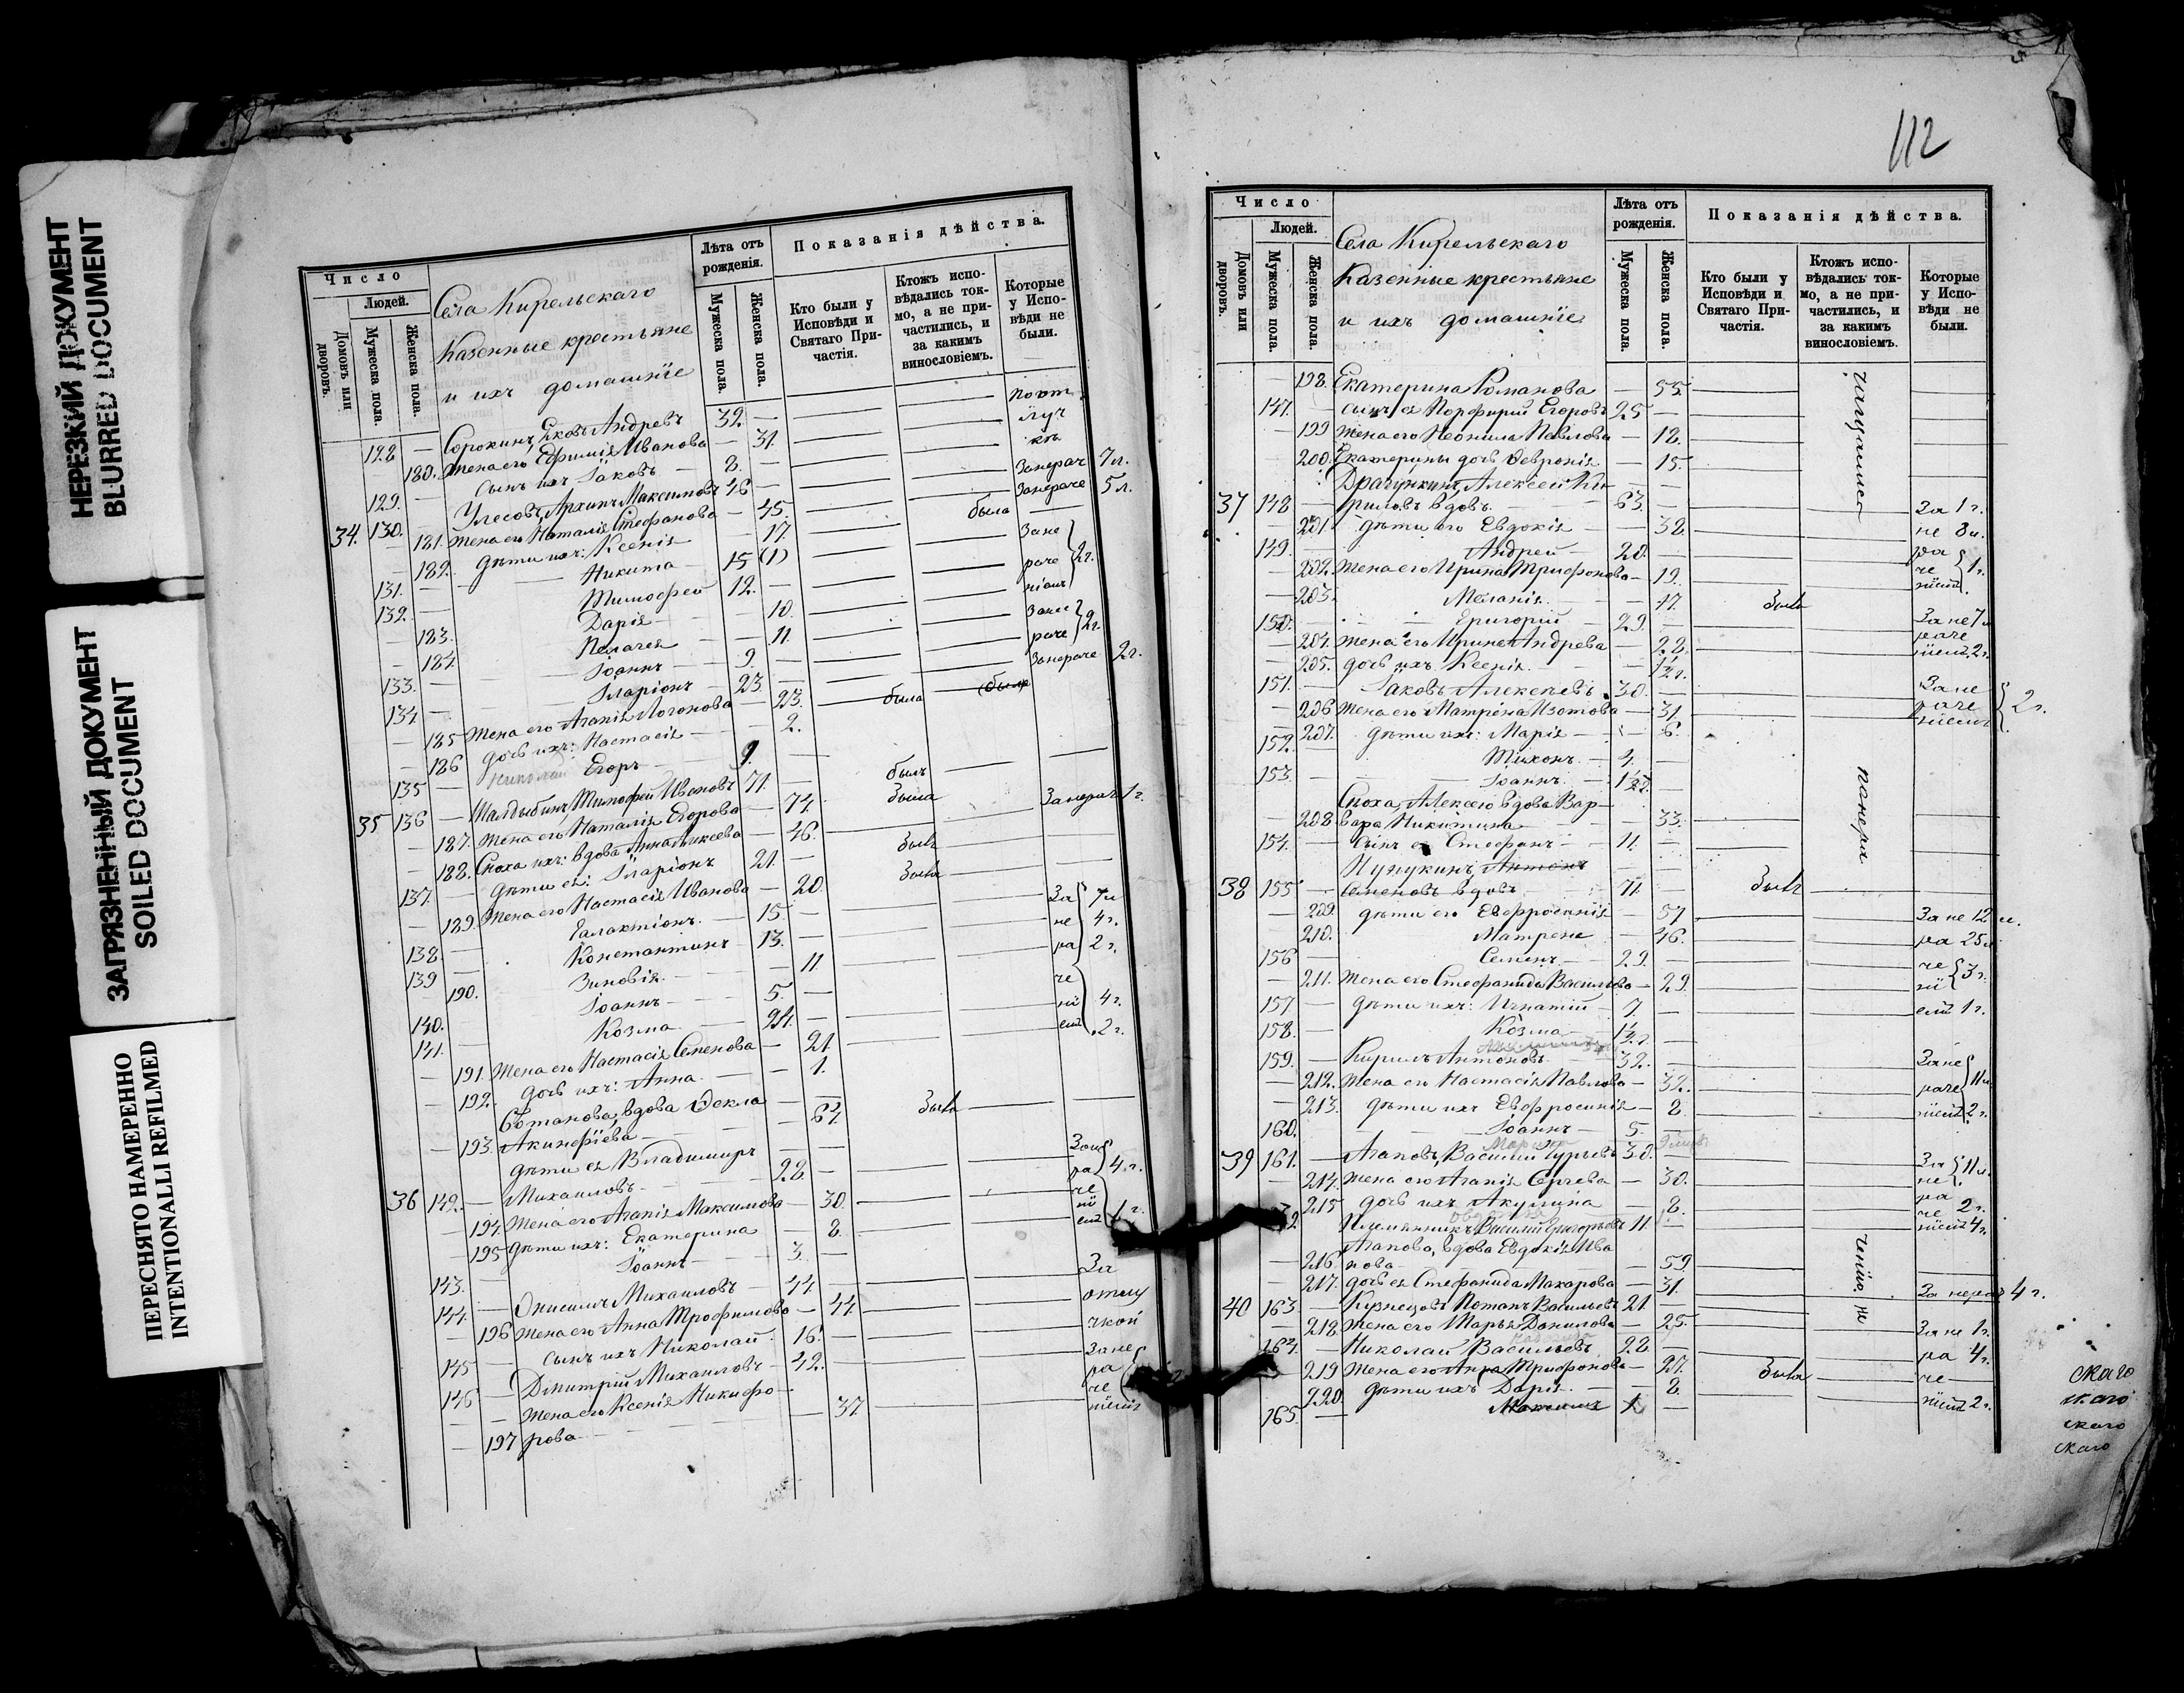 НЕРЕЗКИЙ ДОКУМЕНТ
BLURRED DOCUMENT
ЗАГРЯЗНЕННЫЙ ДОКУМЕНТ
SOILED DOCUMENT
ПЕРЕСНЯТО НАМЕРЕННО
INTENTIONALLI REFILMED
Число
Людей.
Домовъ или дворовъ.
Мужеска пола.
Женска пола.
Села Кирельскаго
Казенные крестьяне
и ихъ домашніе
Лѣта отъ рожденія.
Мужеска пола.
Женска пола.
Показанія дѣйства.
Кто были у Исповѣди и Святаго Причастія.
Ктожъ исповѣдались токмо, а не причастились, и за какимъ винословіемъ.
Которые у Исповѣди не были.
128 — Сорокинъ, Яковъ Андревъ 32. — по от
180. Жена его Ефимія Иванова — 31. луч
129. — сынъ ихъ Іаковъ — 8. — кѣ
34. 130. — Улесовъ, Архипъ Максимовъ 46 — Занерач 7 л.
181. Жена его Наталія Стефанова — 45. Занераче 5 л.
182. дѣти ихъ: Ксенія — 17. была
131. — Никита — 15 (1) Зане
132. — Тимофей 12. — раче 2 г.
183. Дарія — 10. ніемъ
184. Пелагея — 11. Зане
133. — Іоаннъ — 9. — раче 2 г.
134. — Иларіонъ — 23. — Занераче 2 г.
185 Жена его Агапія Логонова — 23. была
186 дочь ихъ: Настасія — 2.
135 — Николай Егоръ — 9.
35 136 — Шалдыбинъ, Тимофей Ивановъ 71. — былъ
187. Жена его Наталія Егорова — 74. была
188. Сноха ихъ: вдова Анна Алексеева — 46. Занерач 1 г.
137. — дѣти ея: Иларіонъ 21. — былъ
189. Жена его Настасія Иванова — 20. была
138. — Галактіонъ — 15. — За 7 л
139 — Константинъ — 13. — не 4 г.
190. Зиновія — 11 ра 2 г.
140. — Іоаннъ — 5. — че
141. — Козма — 24. — ні 4 г.
191. Жена его Настасія Семенова — 21 емъ 2 г.
192. дочь ихъ: Анна — 1.
Ботанова, вдова Фекла
193. Акинфіева — 64. была
дѣти ея Владимиръ
36 142. — Михаиловъ — 28. — Зане
194. Жена его Агапія Максимова — 30. ра 4 г.
195 дѣти ихъ: Екатерина — 8. че
143. — Іоаннъ — 3. — ні 1 г.
144. — Онисимъ Михаиловъ — 44. — За
196 Жена его Анна Трофимова — 44. отлу
145 — сынъ ихъ Николай 16. — чкой
146 — Дмитрій Михаиловъ 42. — Зане
Жена его Ксенія Никифо-
197 рова — 37. ніемъ
112
Число
Людей.
Домовъ или дворовъ.
Мужеска пола.
Женска пола.
Села Кирельскаго
Казенные крестьяне
и ихъ домашніе
Лѣта отъ рожденія.
Мужеска пола.
Женска пола.
Показанія дѣйства.
Кто были у Исповѣди и Святаго Причастія.
Ктожъ исповѣдались токмо, а не причастились, и за какимъ винословіемъ.
Которые у Исповѣди не были.
198. Екатерина Романова — 55.
147. — сынъ ея Порфирій Егоровъ 25 —
199 Жена его Неонила Павлова — 18.
200. Екатерины дочь Февронія — 15.
Драгункинъ, Алексей Ки-
37 148 — риловъ вдовъ — 63. — За 1 г.
201 дѣти его Евдокія — 38. не 8 л.
149. — Андрей — 20. — ра
202. Жена его Ирина Трифонова — 19. че 1 г.
203. Меланія — 17. была ніемъ
150. — Григорій — 29. — Зане 7 л
204. Жена его Ирина Андрева — 28. раче
205. дочь ихъ Ксенія — 1/2 г. ніемъ 2 г.
151. — Іаковъ Алексеевъ 30. — Зане
206 Жена его Матрена Изотова — 31. раче 2 г.
207. дѣти ихъ: Марія — 6. ніемъ
152. Тихонъ — 4. —
153. — Іоаннъ — 1 1/2 г. —
Сноха Алексею вдова Вар-
208 вара Никитина — 33.
154. — сынъ ея Стефанъ — 11. —
Пупукинъ, Антонъ
38 155 — Семеновъ вдовъ 71. былъ
209. дѣти его Евфросинія — 57 Зане 12 л.
210. Матрена — 46. ра 25 л.
156 — Семенъ — 29. — че
211. Жена его Стефанида Васильева — 29. ні 3 г.
157. — дѣти ихъ: Игнатій — 7. — емъ 1 г.
158. Козма — 1 1/2 г. —
159. — Кирилъ Антоновъ — 32. — Зане
212. Жена его Настасія Павлова — 32. раче 11 л
213. дѣти ихъ Евфросинія — 8. ніемъ 2 г.
160. Іоаннъ — 5. —
39 161. — Агаповъ, Василий Гурьевъ 30. — За 11 л.
214. Жена его Агапія Сергева — 30. не
215 дочь ихъ Акулина — 8. ра 2 г.
Племянникъ Василий Григорьевъ 11. — ніемъ 4 г.
Агапова, вдова Евдокія Ива
216 нова — 59
217. дочь ея Стефанида Макарова — 31. Занерач 4 г.
40 163 — Кузнецовъ Потапъ Васильевъ 21 —
218. Жена его Марья Данилова — 25. Зане 1 г.
164. — Николай Васильевъ 28. — ра 4 г.
219 Жена его Анна Трифонова — 27. была че
220. дѣти ихъ Дарія — 8. ніемъ 2 г.
165. — Максимъ 1. —
скаго
скаго
скаго
скаго